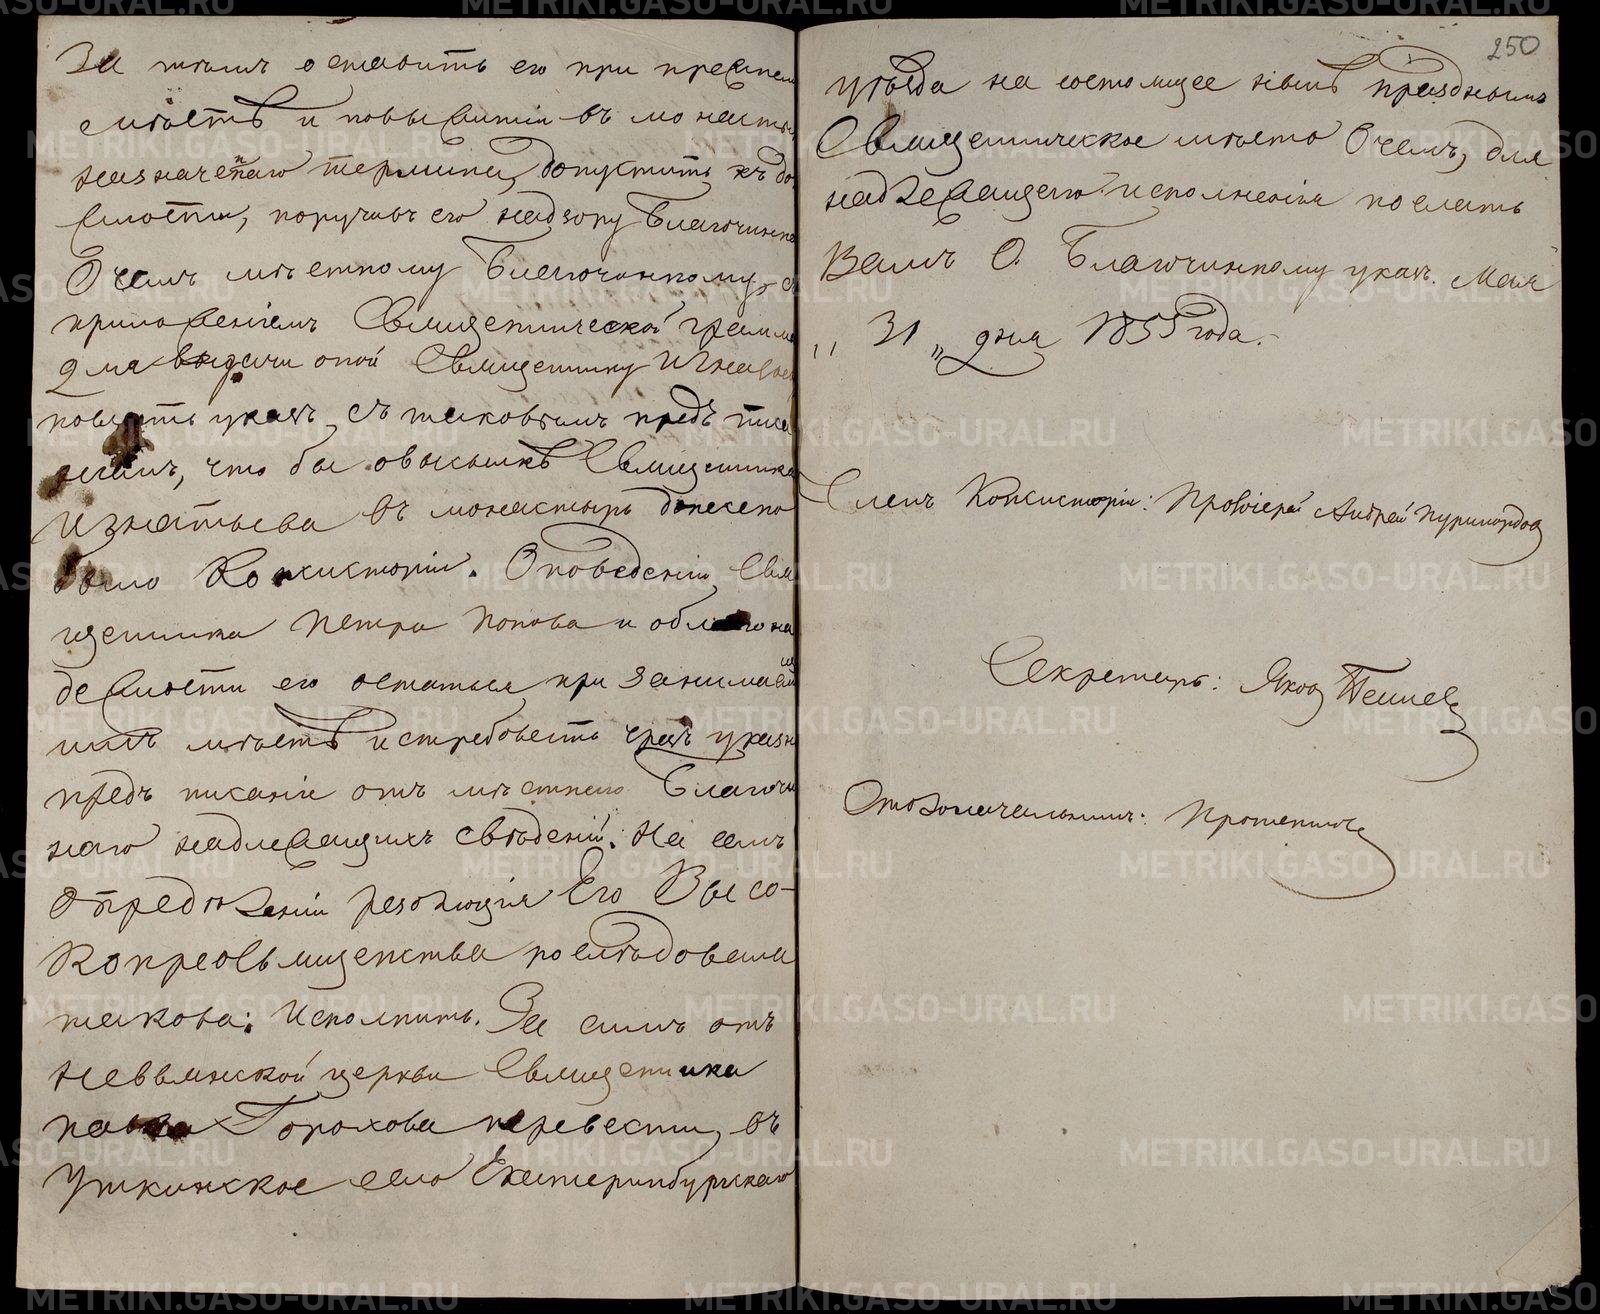 за тѣмъ оставить его при прежнем
мѣстѣ и по выжитіи въ монасты
назначеннаго термина, допустить къ до
жности, поручивъ его надзору Благочинна
О чемъ мѣстному Благочинному, съ
приложеніемъ Священнической грамм
для выдачи оной Священнику Игнать
послать указъ съ таковымъ предъ писа
ніемъ, что бы о высылкѣ Священника
Игнатьева въ монастырь донесено
было Консисторіи. О поведеніи Свя
щенника Петра Попова и о благона
дежности его остаться при занимаем
имъ мѣстѣ истребовать чрезъ указн
предъ писаніе отъ мѣстнаго Благочи
наго надлежащихъ свѣденій. На семъ
опредѣленіи резолюція Его Высо-
копреосвященства послѣдовала
такова: Исполнить. За симъ отъ
Невьянской церкви Священника
Павла Горохова перевести въ
Уткинское село Екатеринбургскаго
250
уѣзда на состоящее нынѣ празднымъ
Священническое мѣсто О чемъ, для
надлежащаго исполненія послать
Вамъ О. Благочинному указъ. Мая
„ 31 „ дня 1855 года.
Членъ Консисторіи: Протоіерей Андрей
Секретарь: Яковъ
Столоначальникъ:
METRIKI.GASO-URAL.RU